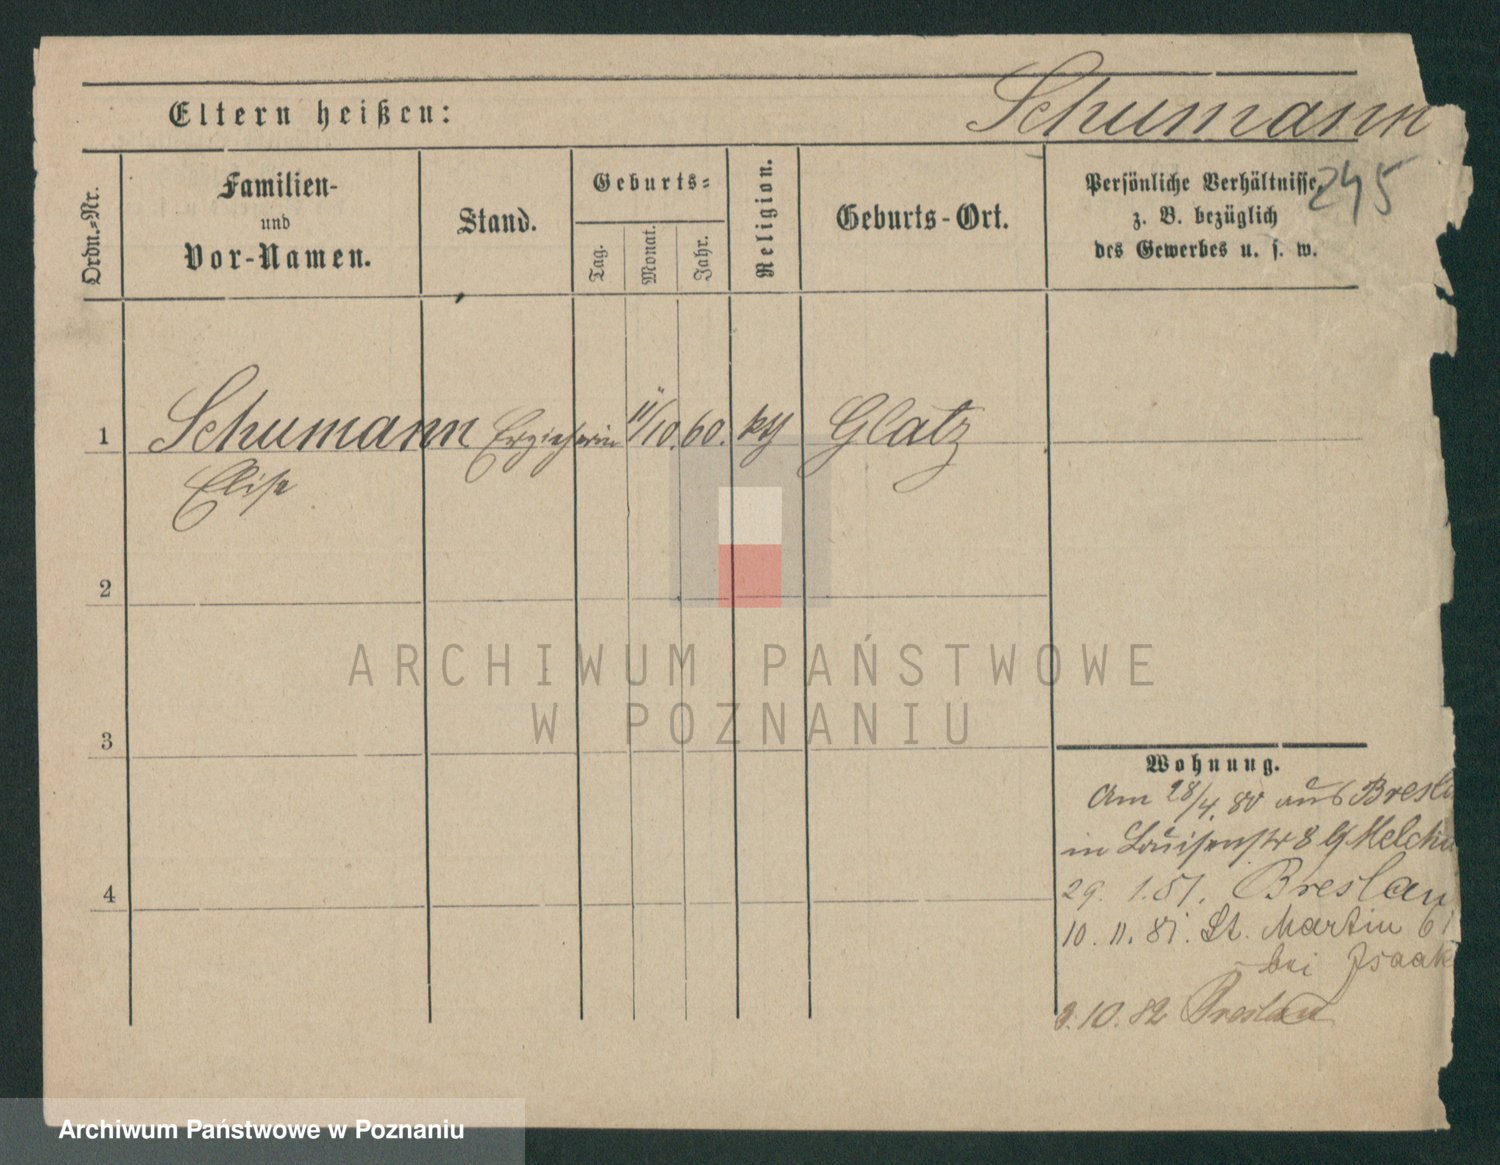 Eltern heißen:
Schumann
245
Ordn.-Nr.
Familien-
und
Vor-Namen.
Stand.
Geburts-
Tag.
Monat.
Jahr.
Religion.
Geburts-Ort.
Persönliche Verhältnisse,
z. B. bezüglich
des Gewerbes u. s. w.
1 Schumann Erzieherin 11/10. 60. kth Glatz
Elise
2
3
4
Wohnung.
Am 28/4. 80 aus Bresl
in Louisenstr 8 b/ Melch
29. 1. 81. Breslau
10. 11. 81. St. Martin 61
bei Isaak
3. 10. 82 Breslau
ARCHIWUM PAŃSTWOWE
W POZNANIU
Archiwum Państwowe w Poznaniu